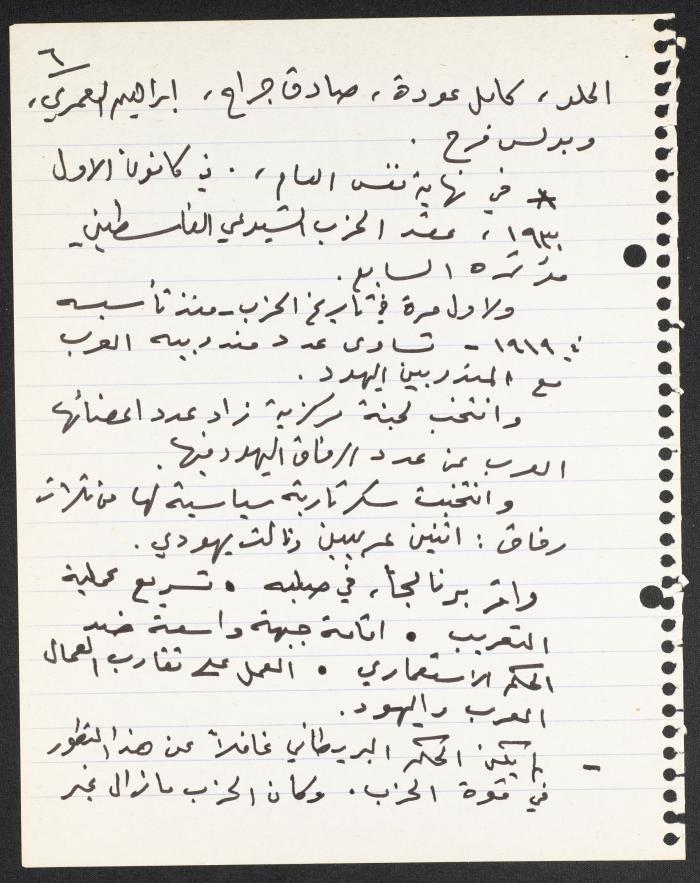 ٦
الحلو، كامل عودة، صادق جراح، ابراهيم العمري،
وبولس فرح.
* في نهاية نفس العام، في كانون الاول
١٩٣٠، عقد الحزب الشيوعي الفلسطيني
مؤتمره السابع.
ولاول مرة في تاريخ الحزب - منذ تأسيسه
في ١٩١٩ - تساوى عدد مندوبيه العرب
مع المندوبين اليهود.
وانتخب لجنة مركزية زاد عدد اعضائها
العرب عن عدد الرفاق اليهود فيها.
وانتخبت سكرتارية سياسية لها من ثلاث
رفاق: اثنين عربيين وثالث يهودي.
واقر برنامجاً، في صلبه • تسريع عملية
التعريب • اقامة جبهة واسعة ضد
الحكم الاستعماري • العمل على تقارب العمال
العرب واليهود.
- لم يكن الحكم البريطاني غافلاً عن هذا التطور
في قوة الحزب. وكان الحزب ما زال غير